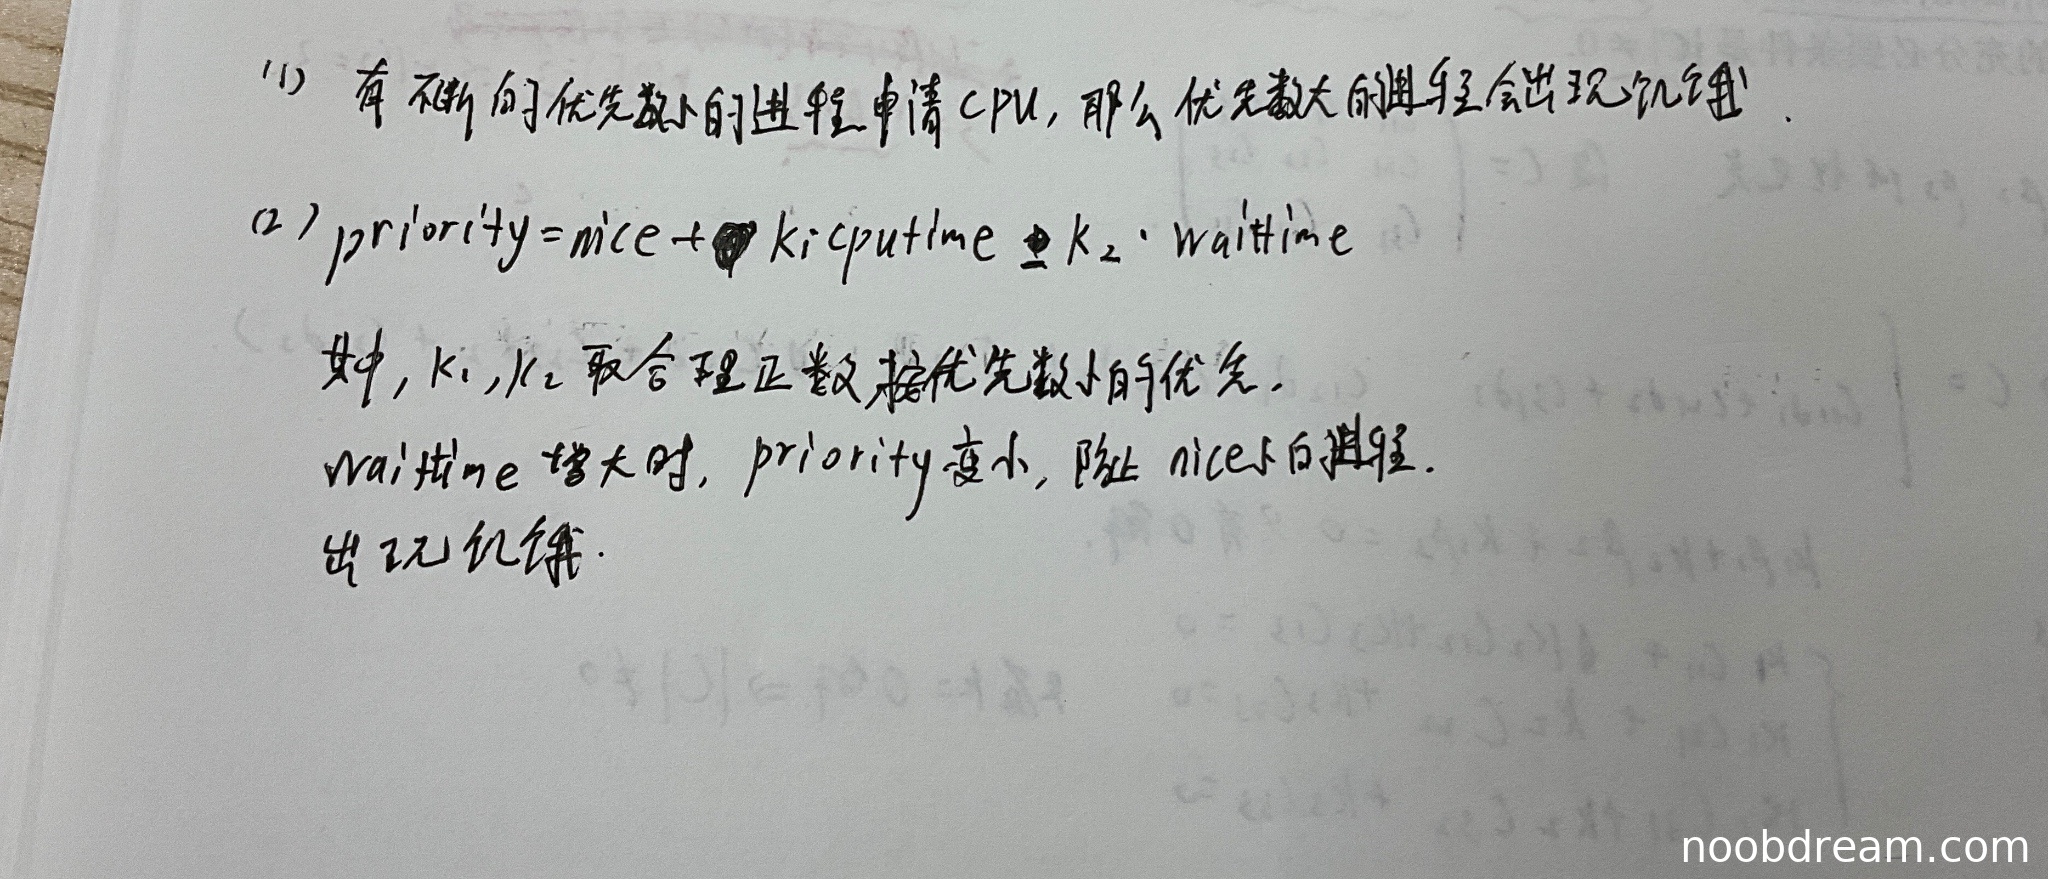 (1) 有不断的优先数小的进程申请CPU, 那么优先数大的进程会出现饥饿.
(2) priority = nice + k₁cputime - k₂·waittime
其中, k₁, k₂ 取合理正数, 按优先数小的优先.
waittime 增大时, priority 变小, 防止 nice小的进程.
出现饥饿.
noobdream.com